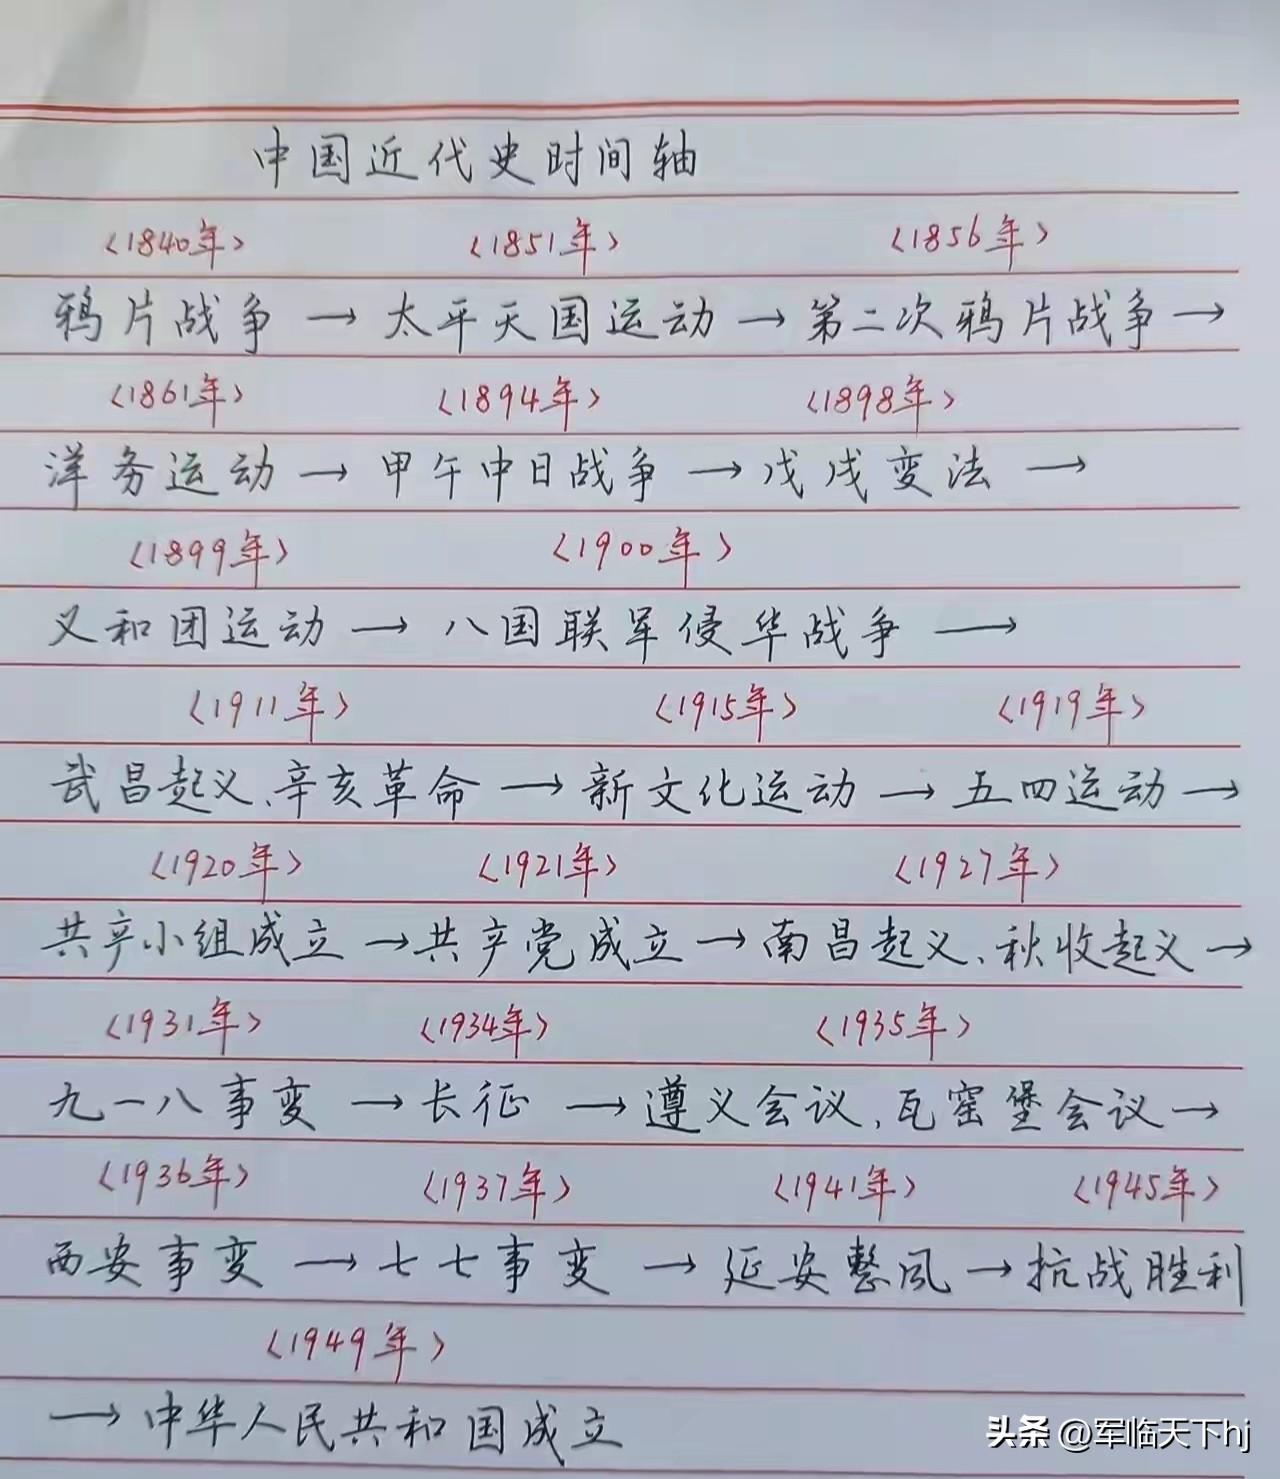 中国近代史时间轴
<1840年> <1851年> <1856年>
鸦片战争 → 太平天国运动 → 第二次鸦片战争 →
<1861年> <1894年> <1898年>
洋务运动 → 甲午中日战争 → 戊戌变法 →
<1899年> <1900年>
义和团运动 → 八国联军侵华战争 →
<1911年> <1915年> <1919年>
武昌起义、辛亥革命 → 新文化运动 → 五四运动 →
<1920年> <1921年> <1927年>
共产小组成立 → 共产党成立 → 南昌起义、秋收起义 →
<1931年> <1934年> <1935年>
九一八事变 → 长征 → 遵义会议、瓦窑堡会议 →
<1936年> <1937年> <1941年> <1945年>
西安事变 → 七七事变 → 延安整风 → 抗战胜利
<1949年>
→ 中华人民共和国成立
头条 @军临天下hj